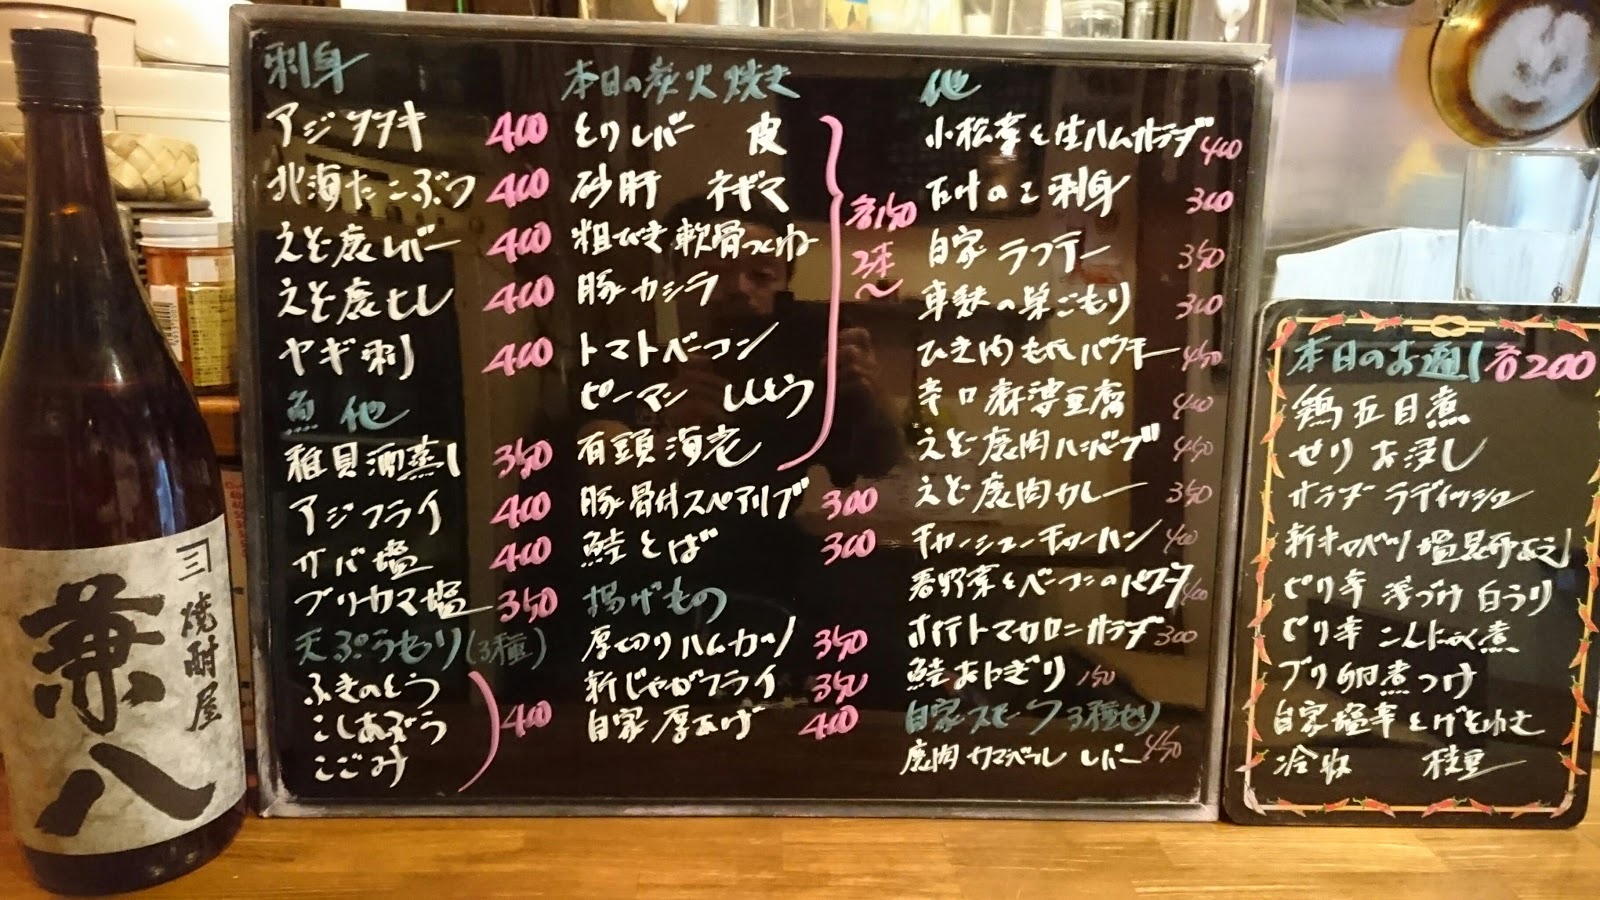 刺身
アジタタキ 400
北海たこぶつ 400
えぞ鹿レバー 400
えぞ鹿ヒレ 400
ヤギ刺 400
魚 他
稚貝酒蒸し 350
アジフライ 400
サバ塩 400
ブリカマ塩 350
天ぷらもり(3種)
ふきのとう
こしあぶら 400
こごみ
本日の炭火焼き
とりレバー 皮
砂肝 ネギマ
粗びき軟骨つくね
豚カシラ
トマトベーコン
ピーマン ししとう
有頭海老
各150
2本〜
豚骨付スペアリブ 300
鮭とば 300
揚げもの
厚切りハムカツ 350
新じゃがフライ 350
自家厚あげ 400
他
小松菜と生ハムサラダ 400
たけのこ刺身 300
自家ラフテー 350
車麩の巣ごもり 300
ひき肉もやしパクチー 450
辛口麻婆豆腐 400
えぞ鹿肉ハンバーグ 450
えぞ鹿肉カレー 350
チャーシューチャーハン 400
春野菜とベーコンのパスタ 400
ポテトマカロニサラダ 300
鮭おにぎり 150
自家スモーク3種もり
鹿肉 カマンベール レバー 450
本日のお通し 各200
鶏五目煮
せりお浸し
サラダラディッシュ
新キャベツ塩昆布あえ
ピリ辛浅づけ白うり
ピリ辛こんにゃく煮
ブリ卵煮つけ
自家塩辛
冷奴 枝豆
三
焼酎屋
兼八